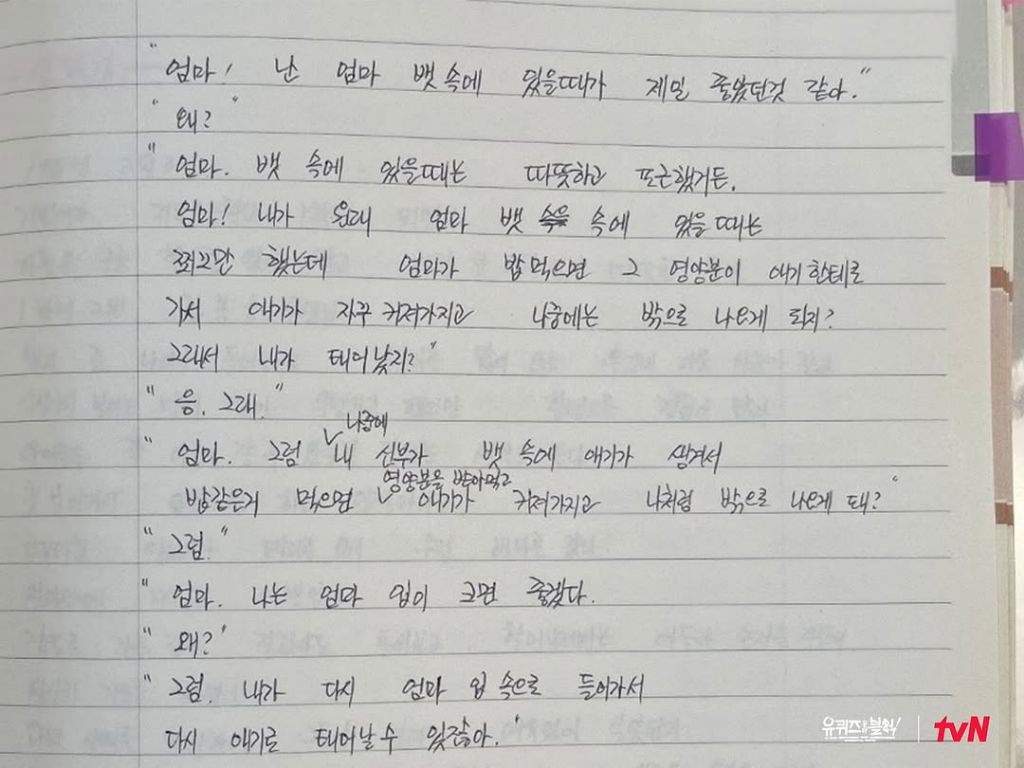 "엄마! 난 엄마 뱃속에 있을때가 제일 좋았던것 같아."
"왜?"
"엄마. 뱃 속에 있을때는 따뜻하고 포근했거든.
엄마! 내가 원래 엄마 뱃 속에 있을때는
쬐끄만 했는데 엄마가 밥먹으면 그 영양분이 애기한테로
가서 애기가 자꾸 커져가지고 나중에는 밖으로 나오게 되지?
그래서 내가 태어났지?"
"응. 그래."
"엄마. 그럼 나중에 내 신부가 뱃속에 애기가 생겨서
밥같은거 먹으면 영양분을 받아먹고 애기가 커져가지고 나처럼 밖으로 나오게 돼?"
"그럼"
"엄마. 나는 엄마 입이 크면 좋겠다.
"왜?"
"그럼. 내가 다시 엄마 입 속으로 들어가서
다시 애기로 태어날 수 있잖아."
유퀴즈온더블럭!
tvN